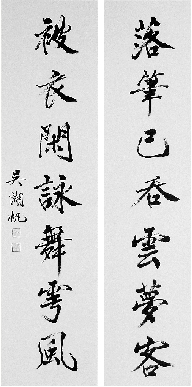 落筆已吞雲夢客
被衣閑詠舞雩風
吳湖帆